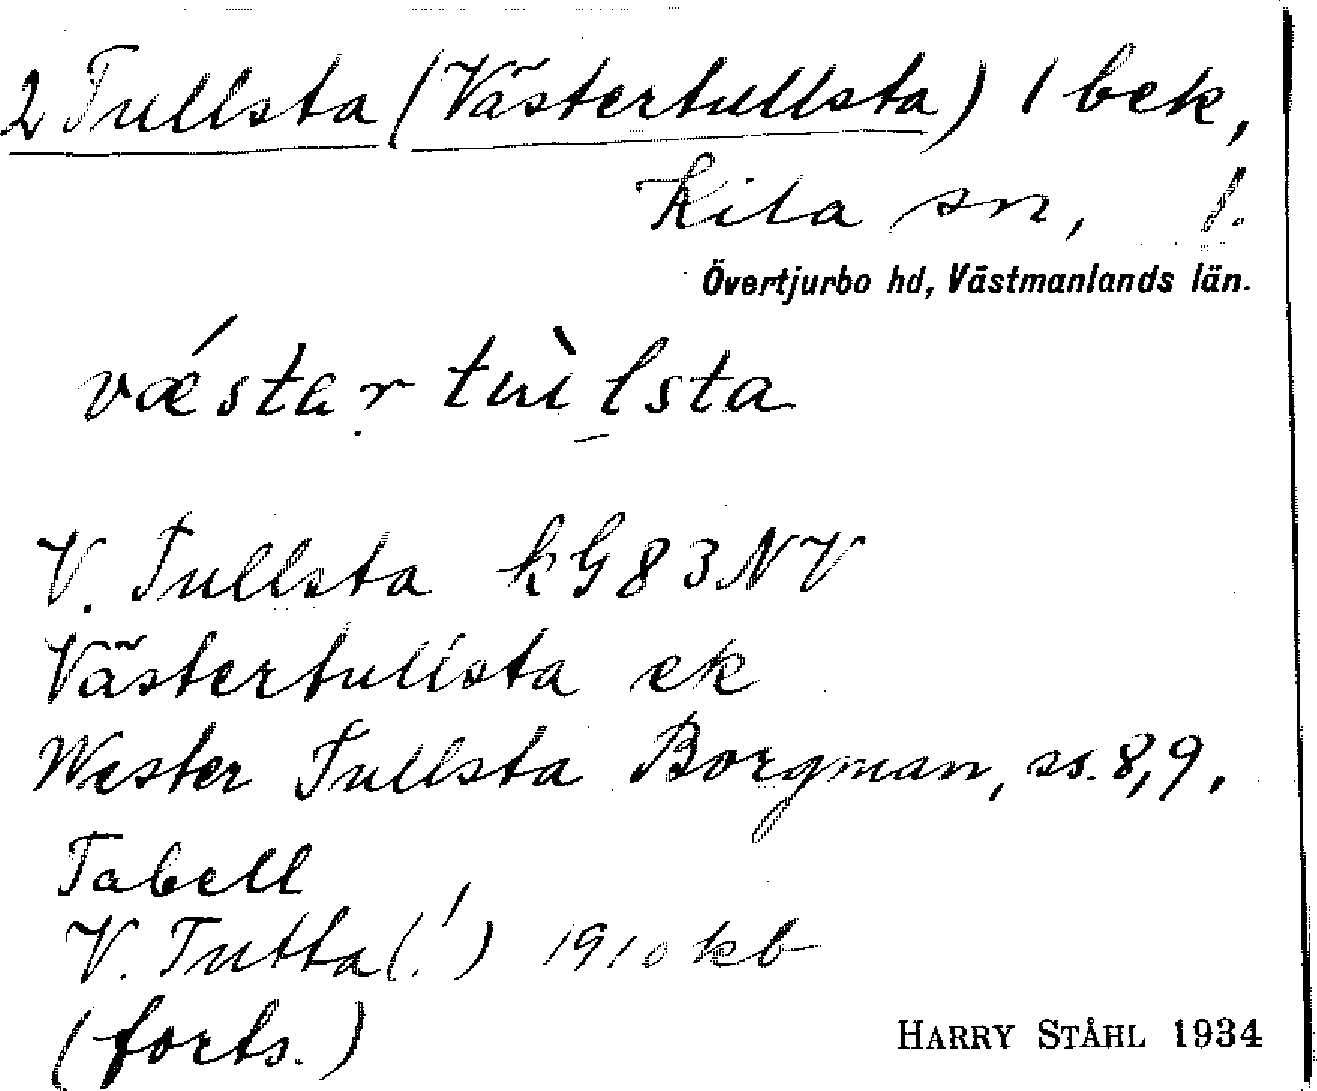 2 Tullsta (Västertullsta) 1 bek,
Kila sn, 1.
Övertjurbo hd, Västmanlands län.
vǽstar tuìlsta
V. Tullsta kG 83 NV
Västertullsta ek
Wester Tullsta Borgman, ss. 8, 9.
Tabell
V. Tutta (!) 1910 kb
(forts.)
HARRY STÅHL 1934